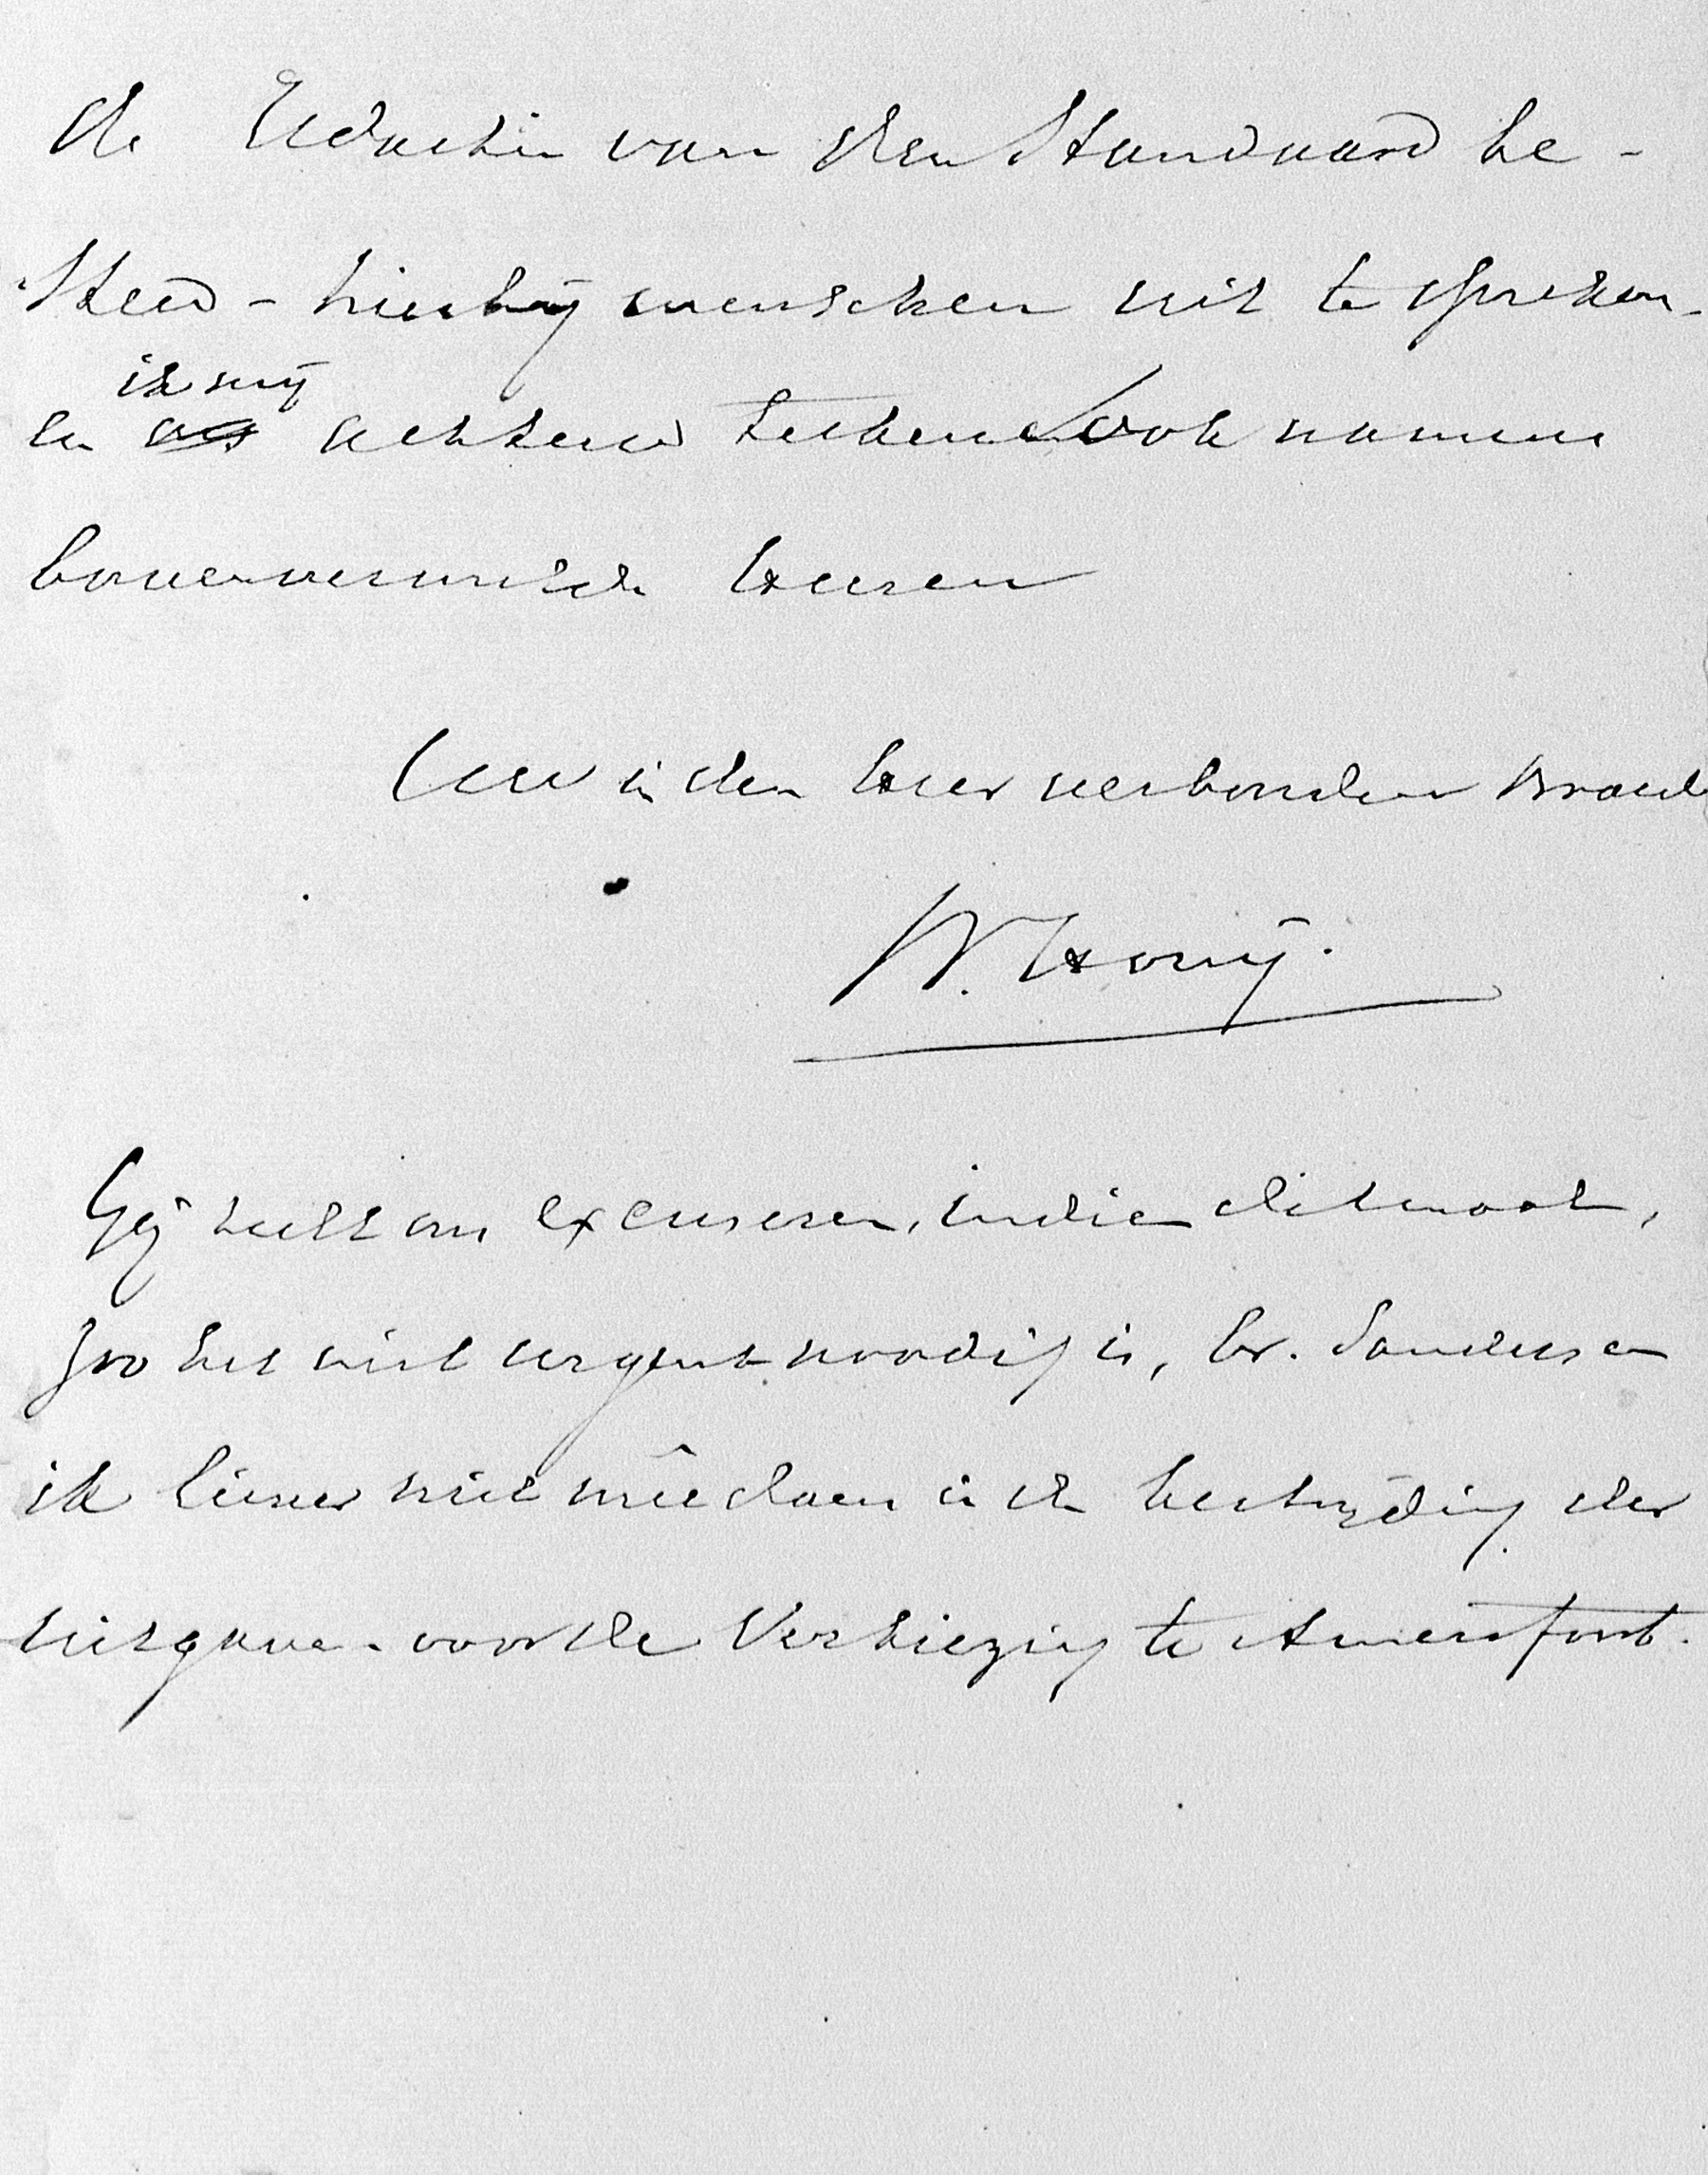 de Redactie van den Standaard be-
steed - hierbij wenschen uit te spreken -
ik mij
en achtend teekenen ook namens
bovenvermelde Heeren
Uw in den Heer verbonden Broeder
W. Hovij.
Gij zult ons excuseren, indien ditmaal,
zoo het niet urgent noodig is, br. Sanders en
ik liever niet mêe doen in de bestrijding der
uitgave - voor de Verkiezing te Amersfoort.